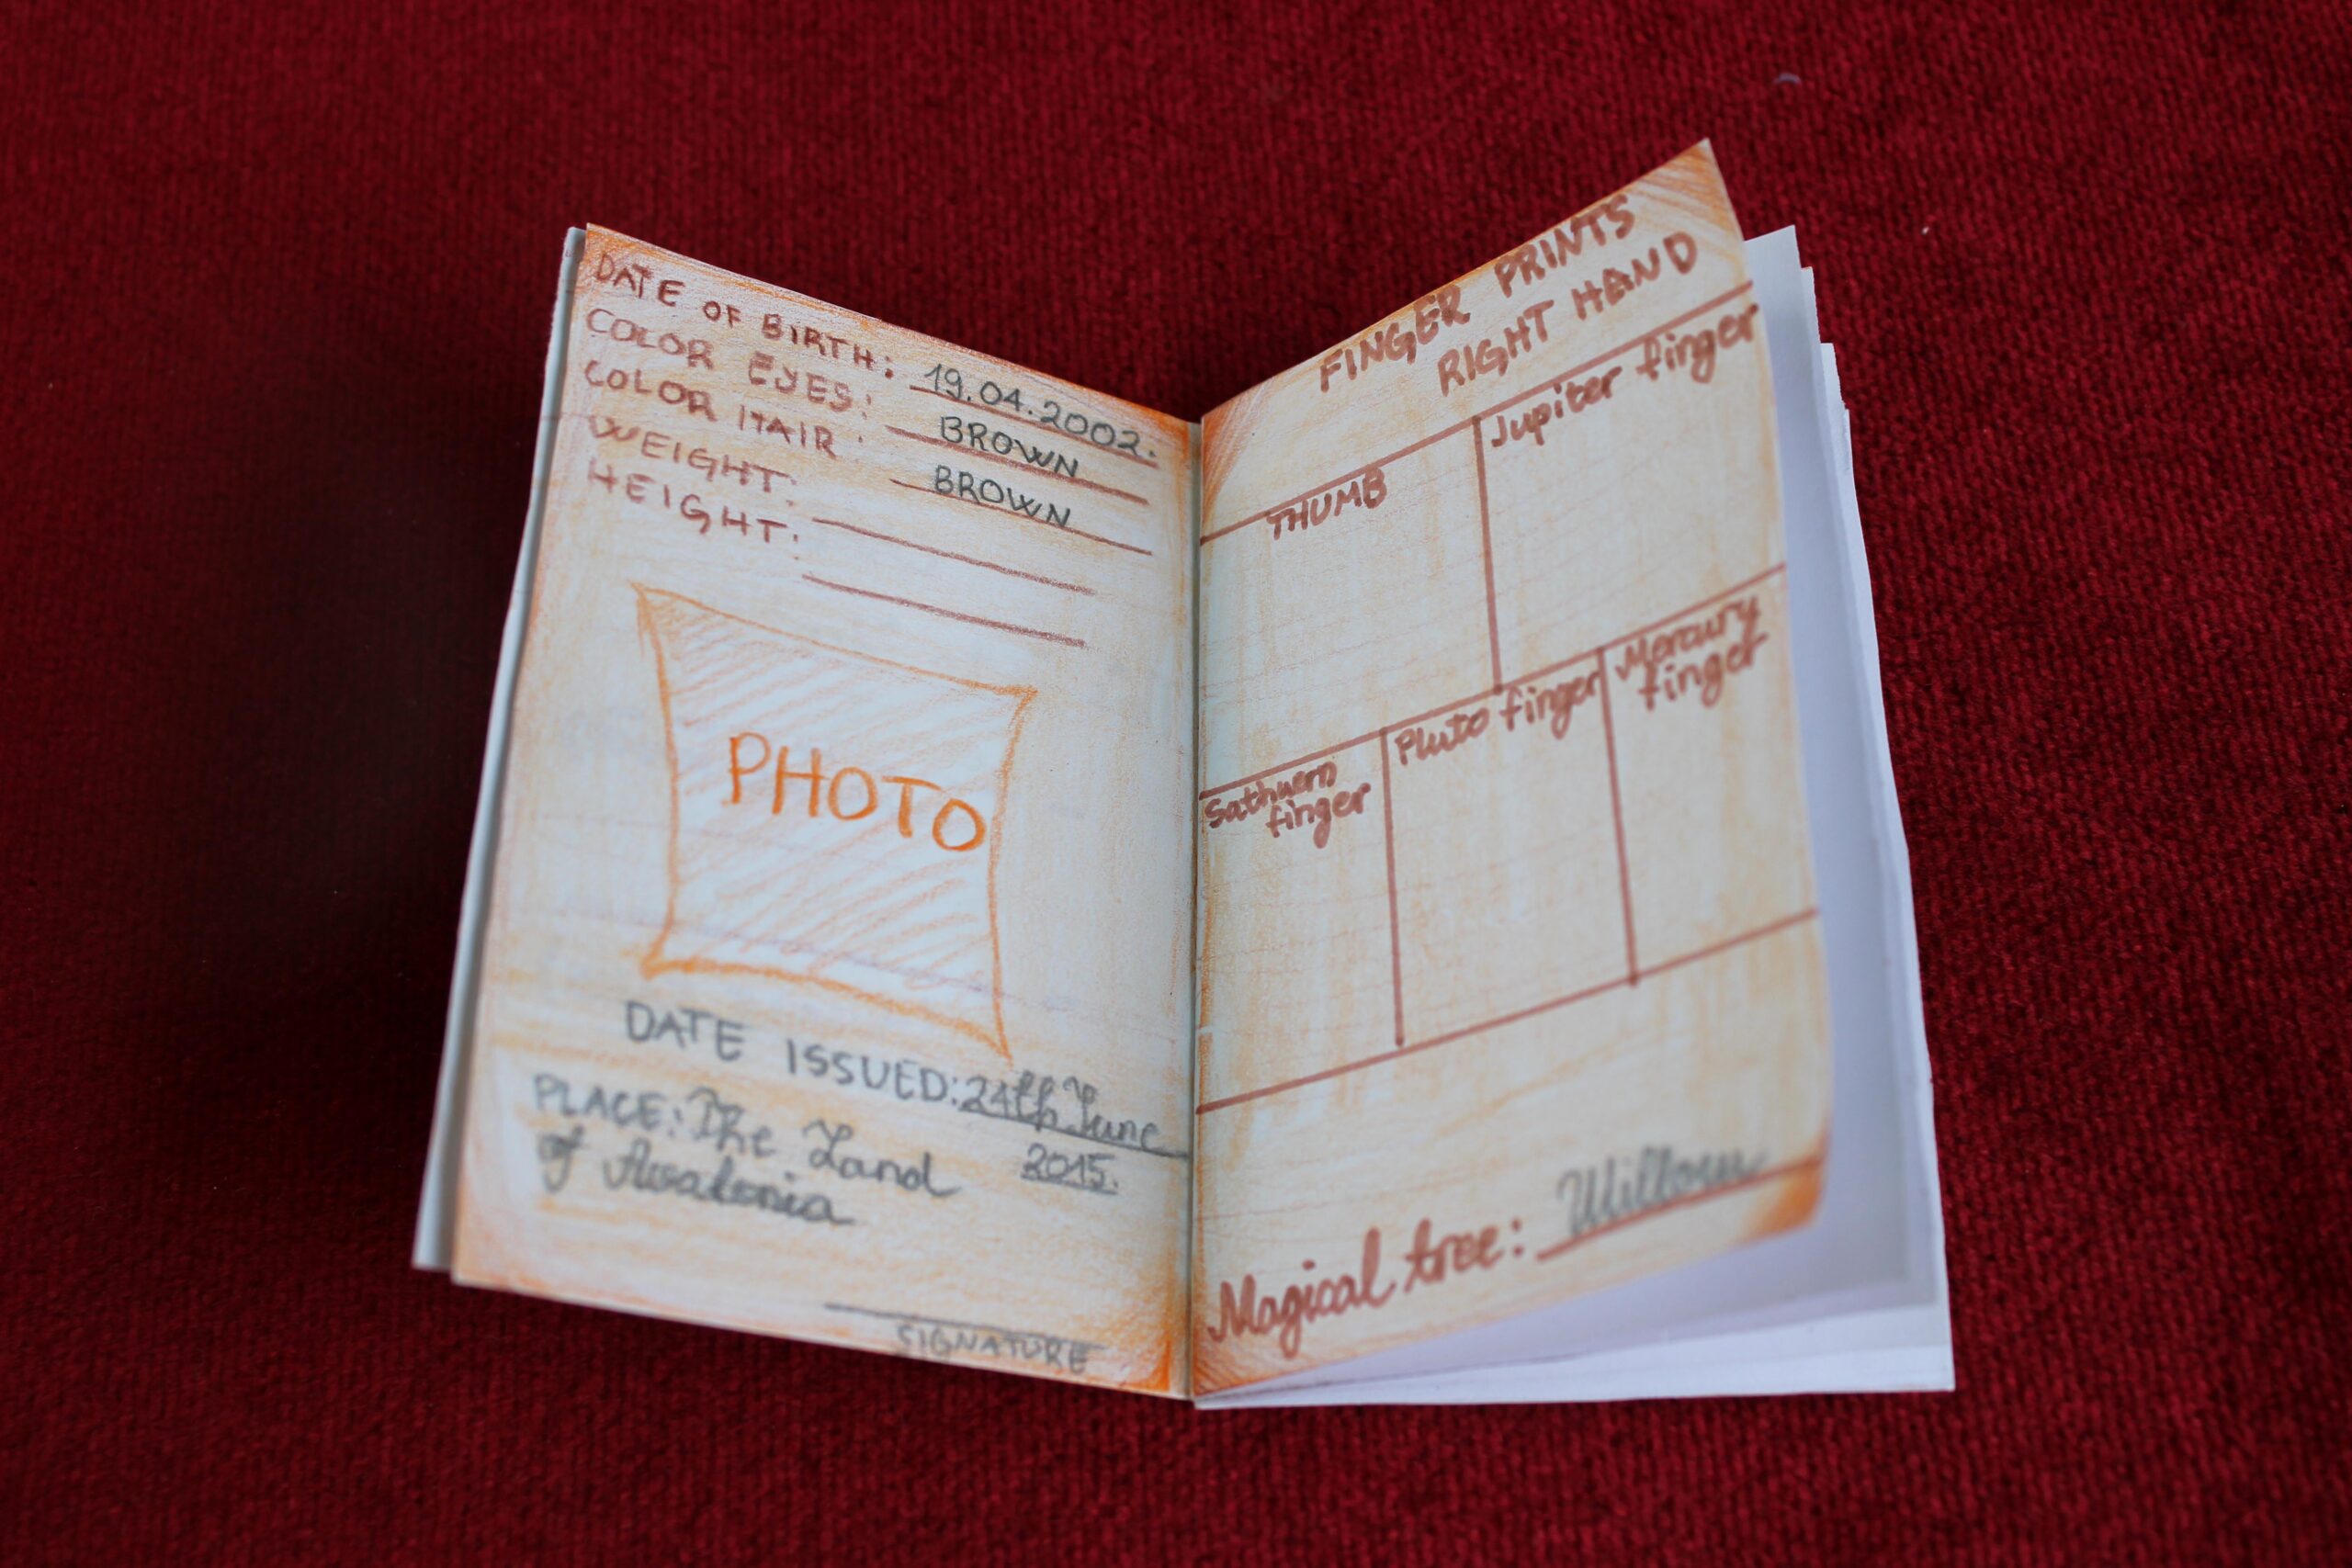 DATE OF BIRTH: 19.04.2002.
COLOR EYES: BROWN
COLOR HAIR: BROWN
WEIGHT:
HEIGHT:
PHOTO
DATE ISSUED: 24th June
2015.
PLACE: The Land
of Avalonia
SIGNATURE
FINGER PRINTS
RIGHT HAND
THUMB
Jupiter finger
Sathuern
finger
Pluto finger
Mercury
finger
Magical tree: Willow